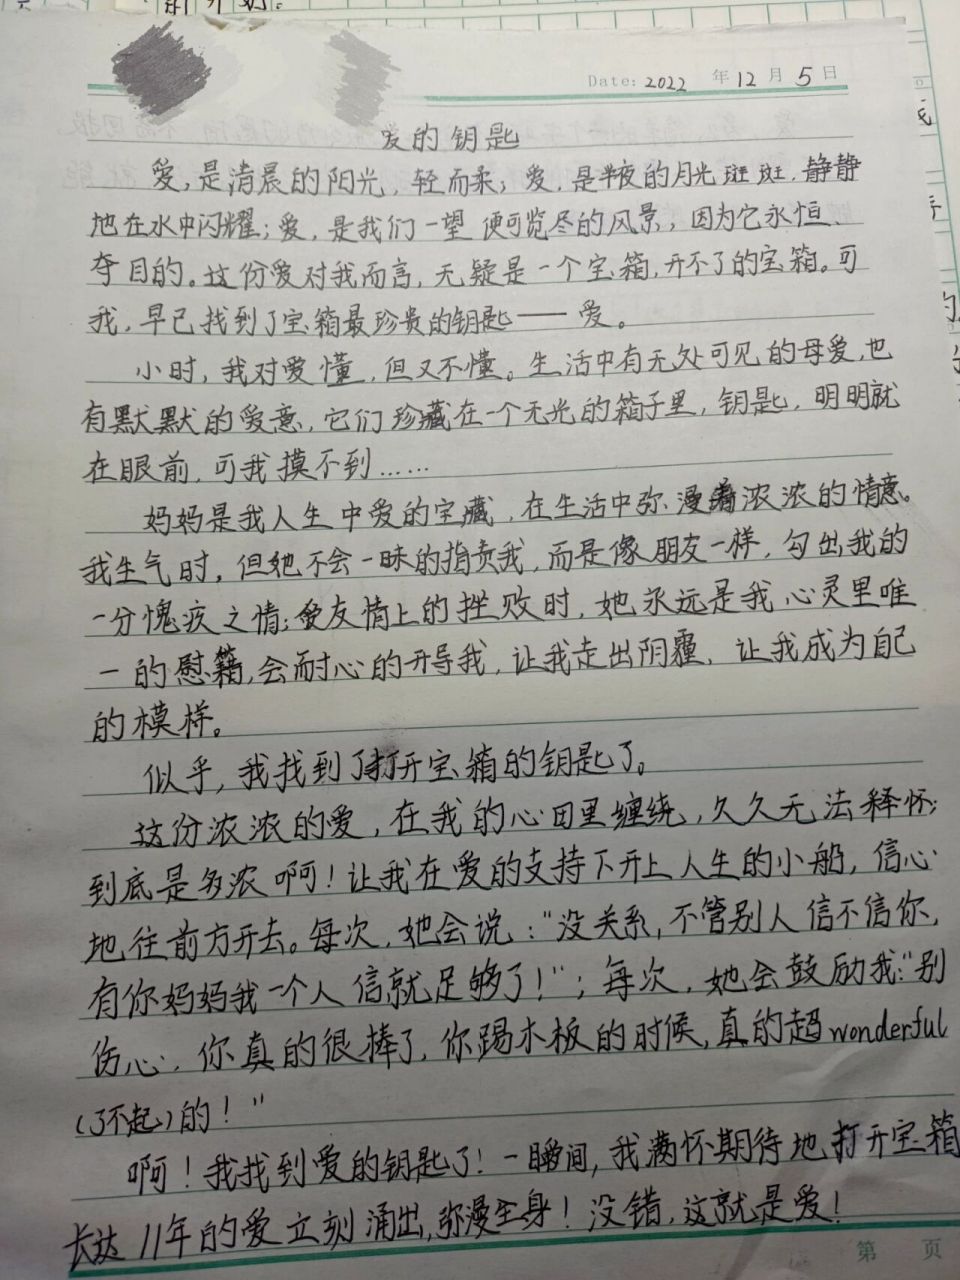 Date: 2022 年 12 月 5 日
爱的钥匙
爱,是清晨的阳光,轻而柔;爱,是半夜的月光斑斑,静静
地在水中闪耀;爱,是我们一望便可览尽的风景,因为它永恒、
夺目的。这份爱对我而言,无疑是一个宝箱,开不了的宝箱。可
我,早已找到了宝箱最珍贵的钥匙——爱。
小时,我对爱懂,但又不懂。生活中有无处可见的母爱,也
有默默的爱意,它们珍藏在一个无光的箱子里,钥匙,明明就
在眼前,可我摸不到……
妈妈是我人生中爱的宝藏,在生活中弥漫着浓浓的情意。
我生气时,但她不会一昧的指责我,而是像朋友一样,勾出我的
一分愧疚之情;友情上的挫败时,她永远是我心灵里唯
一的慰籍,会耐心的开导我,让我走出阴霾,让我成为自己
的模样。
似乎,我找到了打开宝箱的钥匙了。
这份浓浓的爱,在我的心田里缠绕,久久无法释怀;
到底是多浓啊!让我在爱的支持下开上人生的小船,信心
地往前方开去。每次,她会说:“没关系,不管别人信不信你,
有你妈妈我一个人信就足够了!”;每次,她会鼓励我:“别
伤心,你真的很棒了,你踢木板的时候,真的超wonderful
(了不起)的!”
啊!我找到爱的钥匙了!一瞬间,我满怀期待地打开宝箱
长达11年的爱立刻涌出,弥漫全身!没错,这就是爱!
第 页